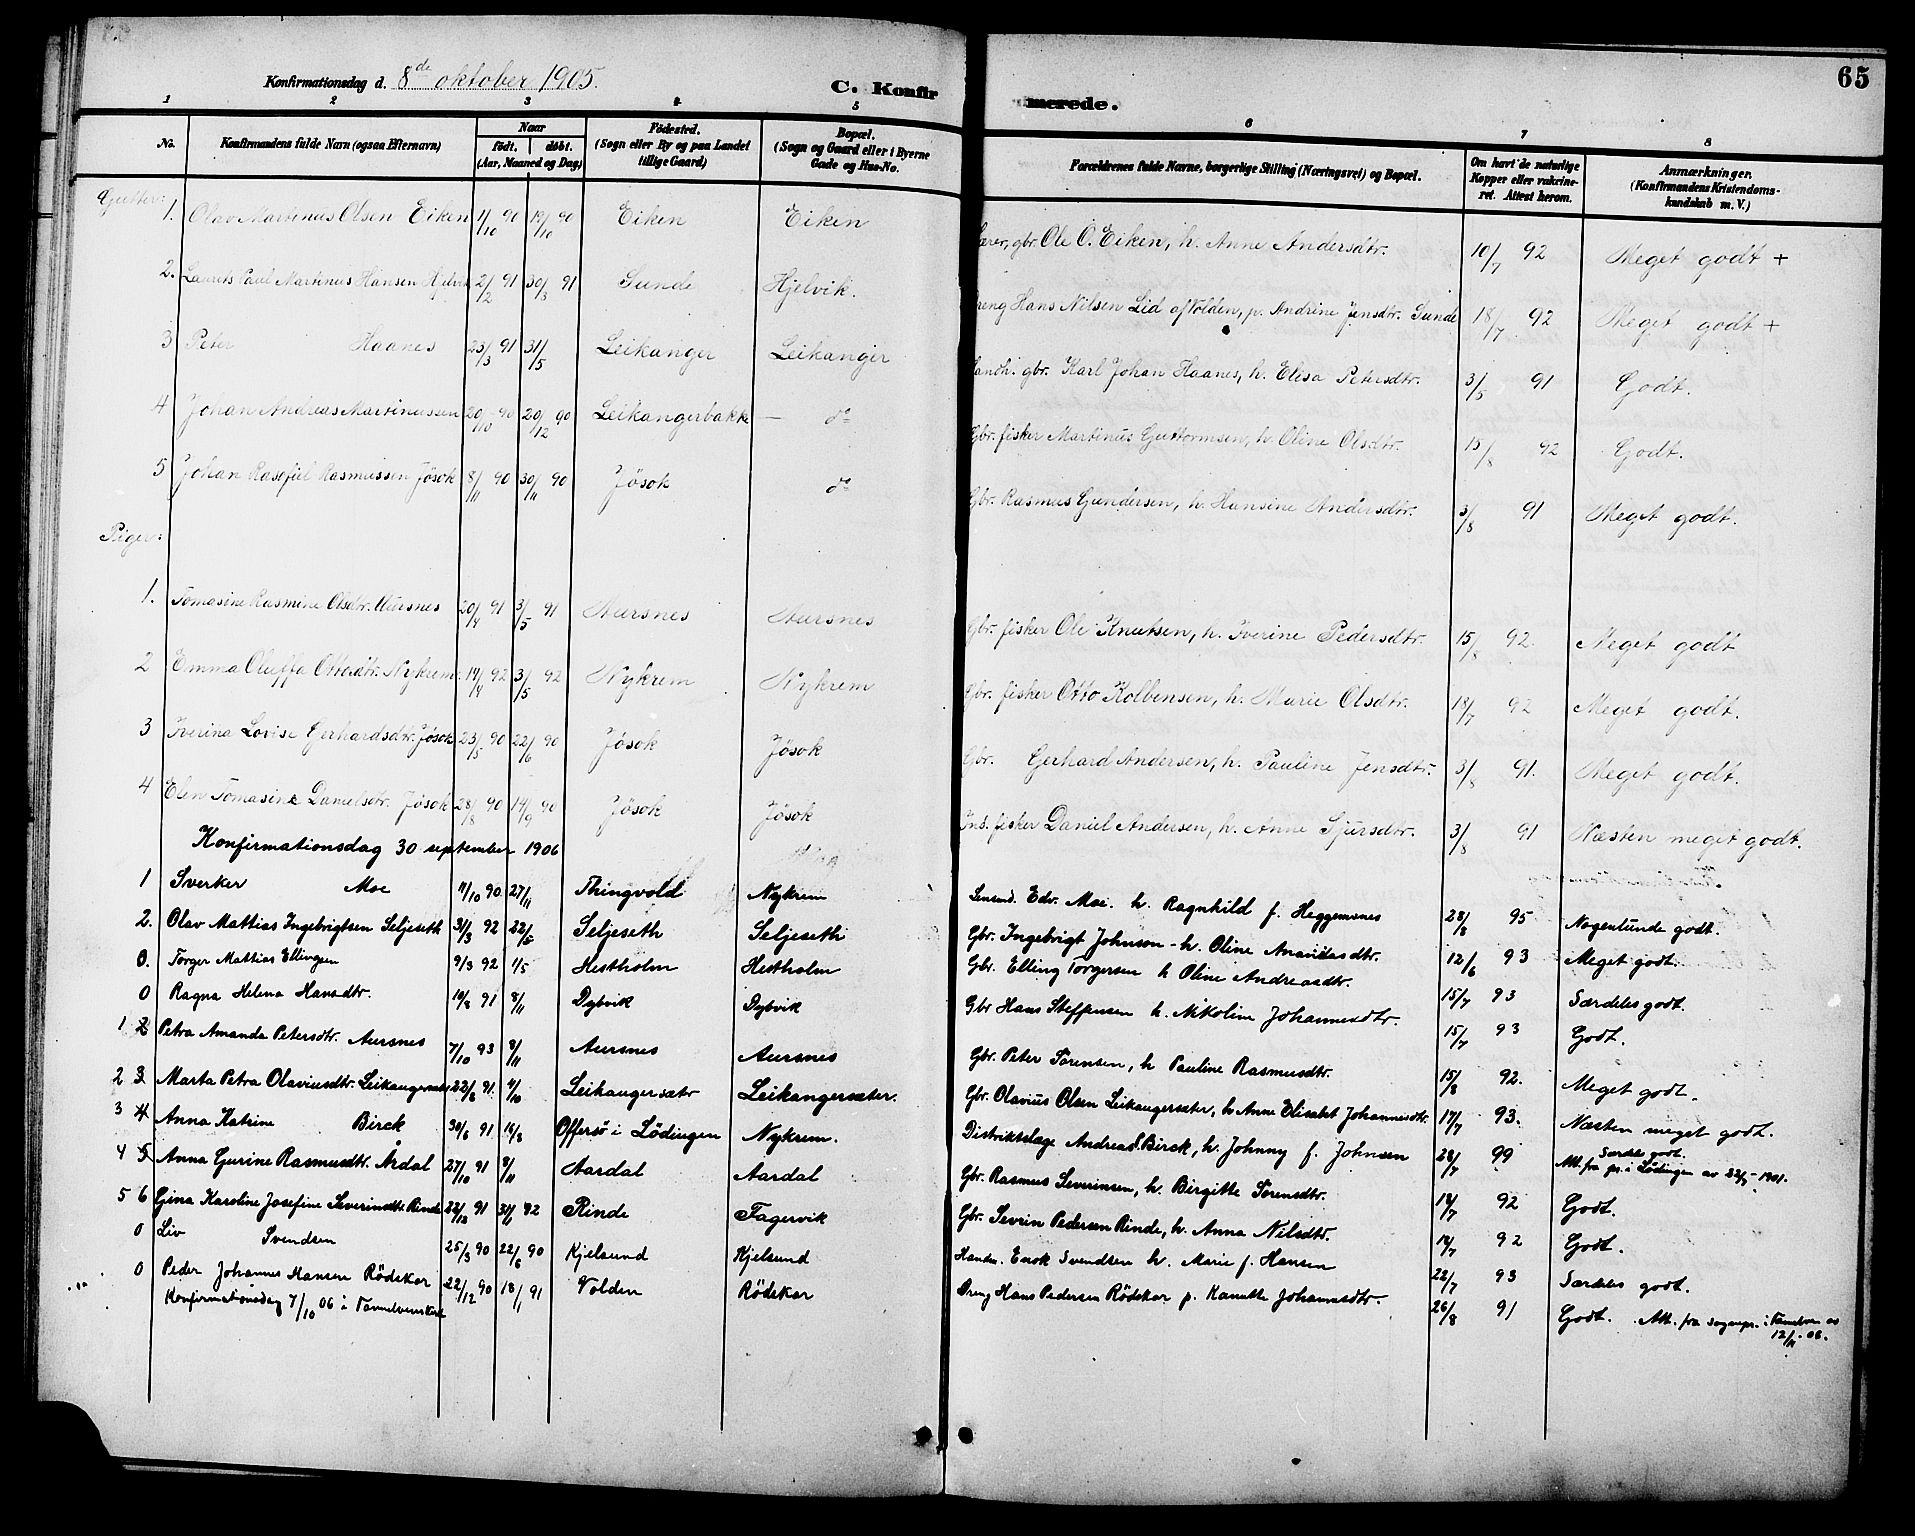 Konfirmationsdag d. 8de oktober 1905.
C. Konfirmerede.
65
1 2 3 4 5 6 7 8
No.
Konfirmandens fulde Navn (ogsaa Efternavn)
Naar
födt. döbt.
(Aar, Maaned og Dag)
Födested.
(Sogn eller By og paa Landet
tillige Gaard)
Bopæl.
(Sogn og Gaard eller i Byerne
Gade og Hus-No.
Forældrenes fulde Navne, borgerlige Stilling (Næringsvei) og Bopæl.
Om havt de naturlige
Kopper eller vakcine-
ret. Attest herom.
Anmærkninger.
(Konfirmandens Kristendoms-
kundskab m. V.)
Gutter:
1. Olav Martinus Olsen Eiken 1/10 90 19/10 90 Eiken Eiken Lærer, gbr. Ole O. Eiken, h. Anne Andersdtr. 10/7 92 Meget godt +
2. Laurits Paul Martinus Hansen Hjelvik 2/2 91 30/3 91 Sunde Hjelvik. Dreng Hans Nilsen Lid af Volden, p. Andrine Jensdtr. Sunde 18/7 92 Meget godt +
3 Peter Haanes 23/3 91 31/5 Leikanger Leikanger Handh. gbr. Karl Johan Haanes, h. Elisa Petersdtr. 3/5 91 Godt.
4 Johan Andreas Martinussen 20/10 90 20/12 90 Leikangerbakke — do Gbr. fisker Martinus Guttormsen, h. Oline Olsdtr. 15/8 92 Godt.
5 Johan Rasefiel Rasmussen Jösok 8/11 90 30/11 90 Jösok do Gbr. Rasmus Gundersen, h. Hansine Andersdtr. 3/8 91 Meget godt.
Piger:
1. Tomasine Rasmine Olsdtr. Aursnes 20/4 91 3/5 91 Aursnes Aursnes Gbr. fisker Ole Knutsen, h. Iverine Pedersdtr. 15/8 92. Meget godt
2 Emma Oluffa Ottosdtr. Nykrem 14/4 92 3/5 92 Nykrem Nykrem Gbr. fisker Otto Kolbensen, h. Marie Olsdtr. 18/7 92 Meget godt.
3 Iverina Lovise Gerhardsdtr. Jösok 23/5 90 22/6 90 Jösok Jösok Gbr. Gerhard Andersen, h. Pauline Jensdtr. 3/8 91. Meget godt.
4 Elen Tomasine Danielsdtr. Jösok 28/8 90 14/9 90 Jösok Jösok Ins. fisker Daniel Andersen, h. Anne Sjursdtr. 3/8 91 Næsten meget godt.
Konfirmationsdag 30 september 1906
1 Sverker Moe 11/10 90 27/11 Thingvold Nykrem Lensmd. Edv. Moe. h. Ragnhild f. Heggemsnes 28/8 95 Nogenlunde godt.
2. Olav Mattias Ingebrigtsen Seljeseth 31/3 92 22/5 Seljeseth Seljeseth Gbr. Ingebrigt Johnson - h. Oline Ananiasdtr. 12/6 93 Meget godt.
0. Torger Mattias Ellingsen 9/3 92 1/5 Hestholm Hestholm Gbr. Elling Torgersen h Oline Andreasdtr. 15/7 93 Særdeles godt.
0 Ragna Helena Hansdtr. 10/8 91 8/11 Dybvik Dybvik Gbr Hans Steffensen h. Nikoline Johannesdtr. 15/7 93 Godt.
1 2 Petra Amanda Petersdtr. Aursnes 7/10 93 8/11 Aursnes Aursnes Gbr. Peter Sörensen, h Pauline Rasmusdtr. 15/8 92. Meget godt.
2 3. Marta Petra Olaviusdtr. Leikangersæter 22/8 91. 4/10 Leikangersætr Leikangersæter. Gbr. Olavius Olsen Leikangersæter, h Anne Elisabet Johannesdtr. 17/7 93. Næsten meget godt.
3 4 Anna Katrine Birck 30/6 91 16/8 Offersö i Lödingen Nykrem. Distriktslæge Andreas S. Birck, h. Johnny f. Johnsen 28/7 99 Særdls godt.
Att. fra pr. i Lödingen av 22/7 - 1901.
4 5 Anna Gurine Rasmusdtr. Årdal 27/10 91 8/11 Aardal Aardal Gbr. Rasmus Severinsen, h. Birgitte Sörensdtr. 14/7 92 Godt.
5 6 Gina Karoline Josefine Severinsdtr. Rinde 22/12 91 31/1 92 Rinde Fagervik Gbr. Sevrin Pedersen Rinde, h. Anna Nilsdtr. 14/7 92 Godt.
0 Liv Svendsen 25/3 90 22/6 90 Kjelsund Kjelsund Handm. Enok Svendsen h. Marie f. Hansen 22/7 93 Særdeles godt.
0 Peder Johannes Hansen Rödsker 22/12 90 18/1 91 Volden Rödskar Dreng Hans Pedersen Rödskar p. Hanette Johannesdtr. 26/8 91 Godt. Att. fra sognepr. i Vanelven av
12/11 - 06.
Konfirmationsdag 7/10 06 i Vannelvenskirke